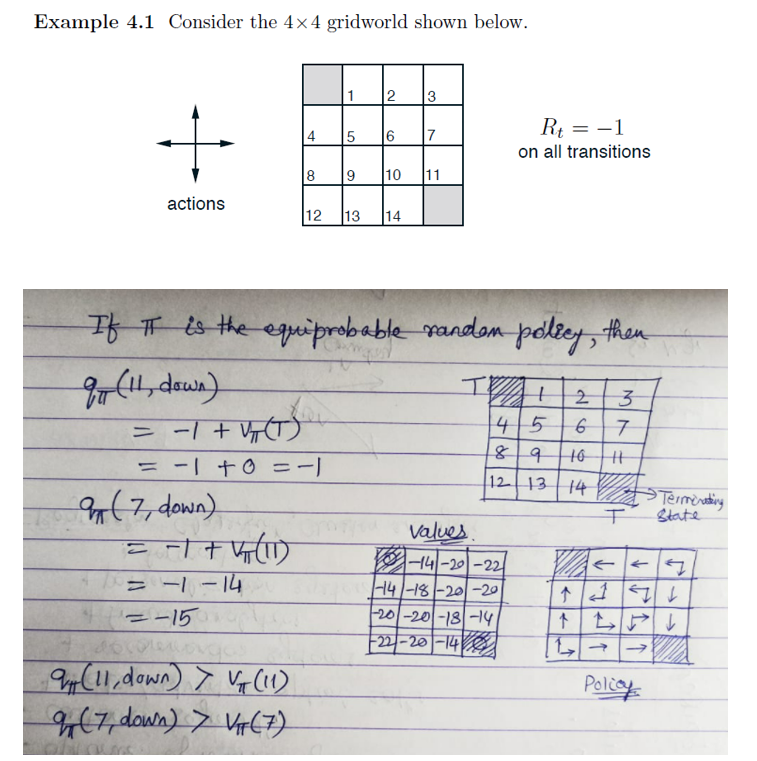 Example 4.1 Consider the 4×4 gridworld shown below.
1 2 3
4 5 6 7
8 9 10 11
12 13 14
actions
R_t = −1
on all transitions
If π is the equiprobable random policy, then
q_π(11, down)
= -1 + V_π(T)
= -1 + 0 = -1
q_π(7, down)
= -1 + V_π(11)
= -1 -14
= -15
q_π(11, down) > V_π(11)
q_π(7, down) > V_π(7)
T 1 2 3
4 5 6 7
8 9 10 11
12 13 14
T
Terminating
State
Values.
0 -14 -20 -22
-14 -18 -20 -20
-20 -20 -18 -14
-22 -20 -14 0
← ← ↰
↑ ↰ ↰ ↓
↑ ↳ ↱ ↓
↳ → →
Policy